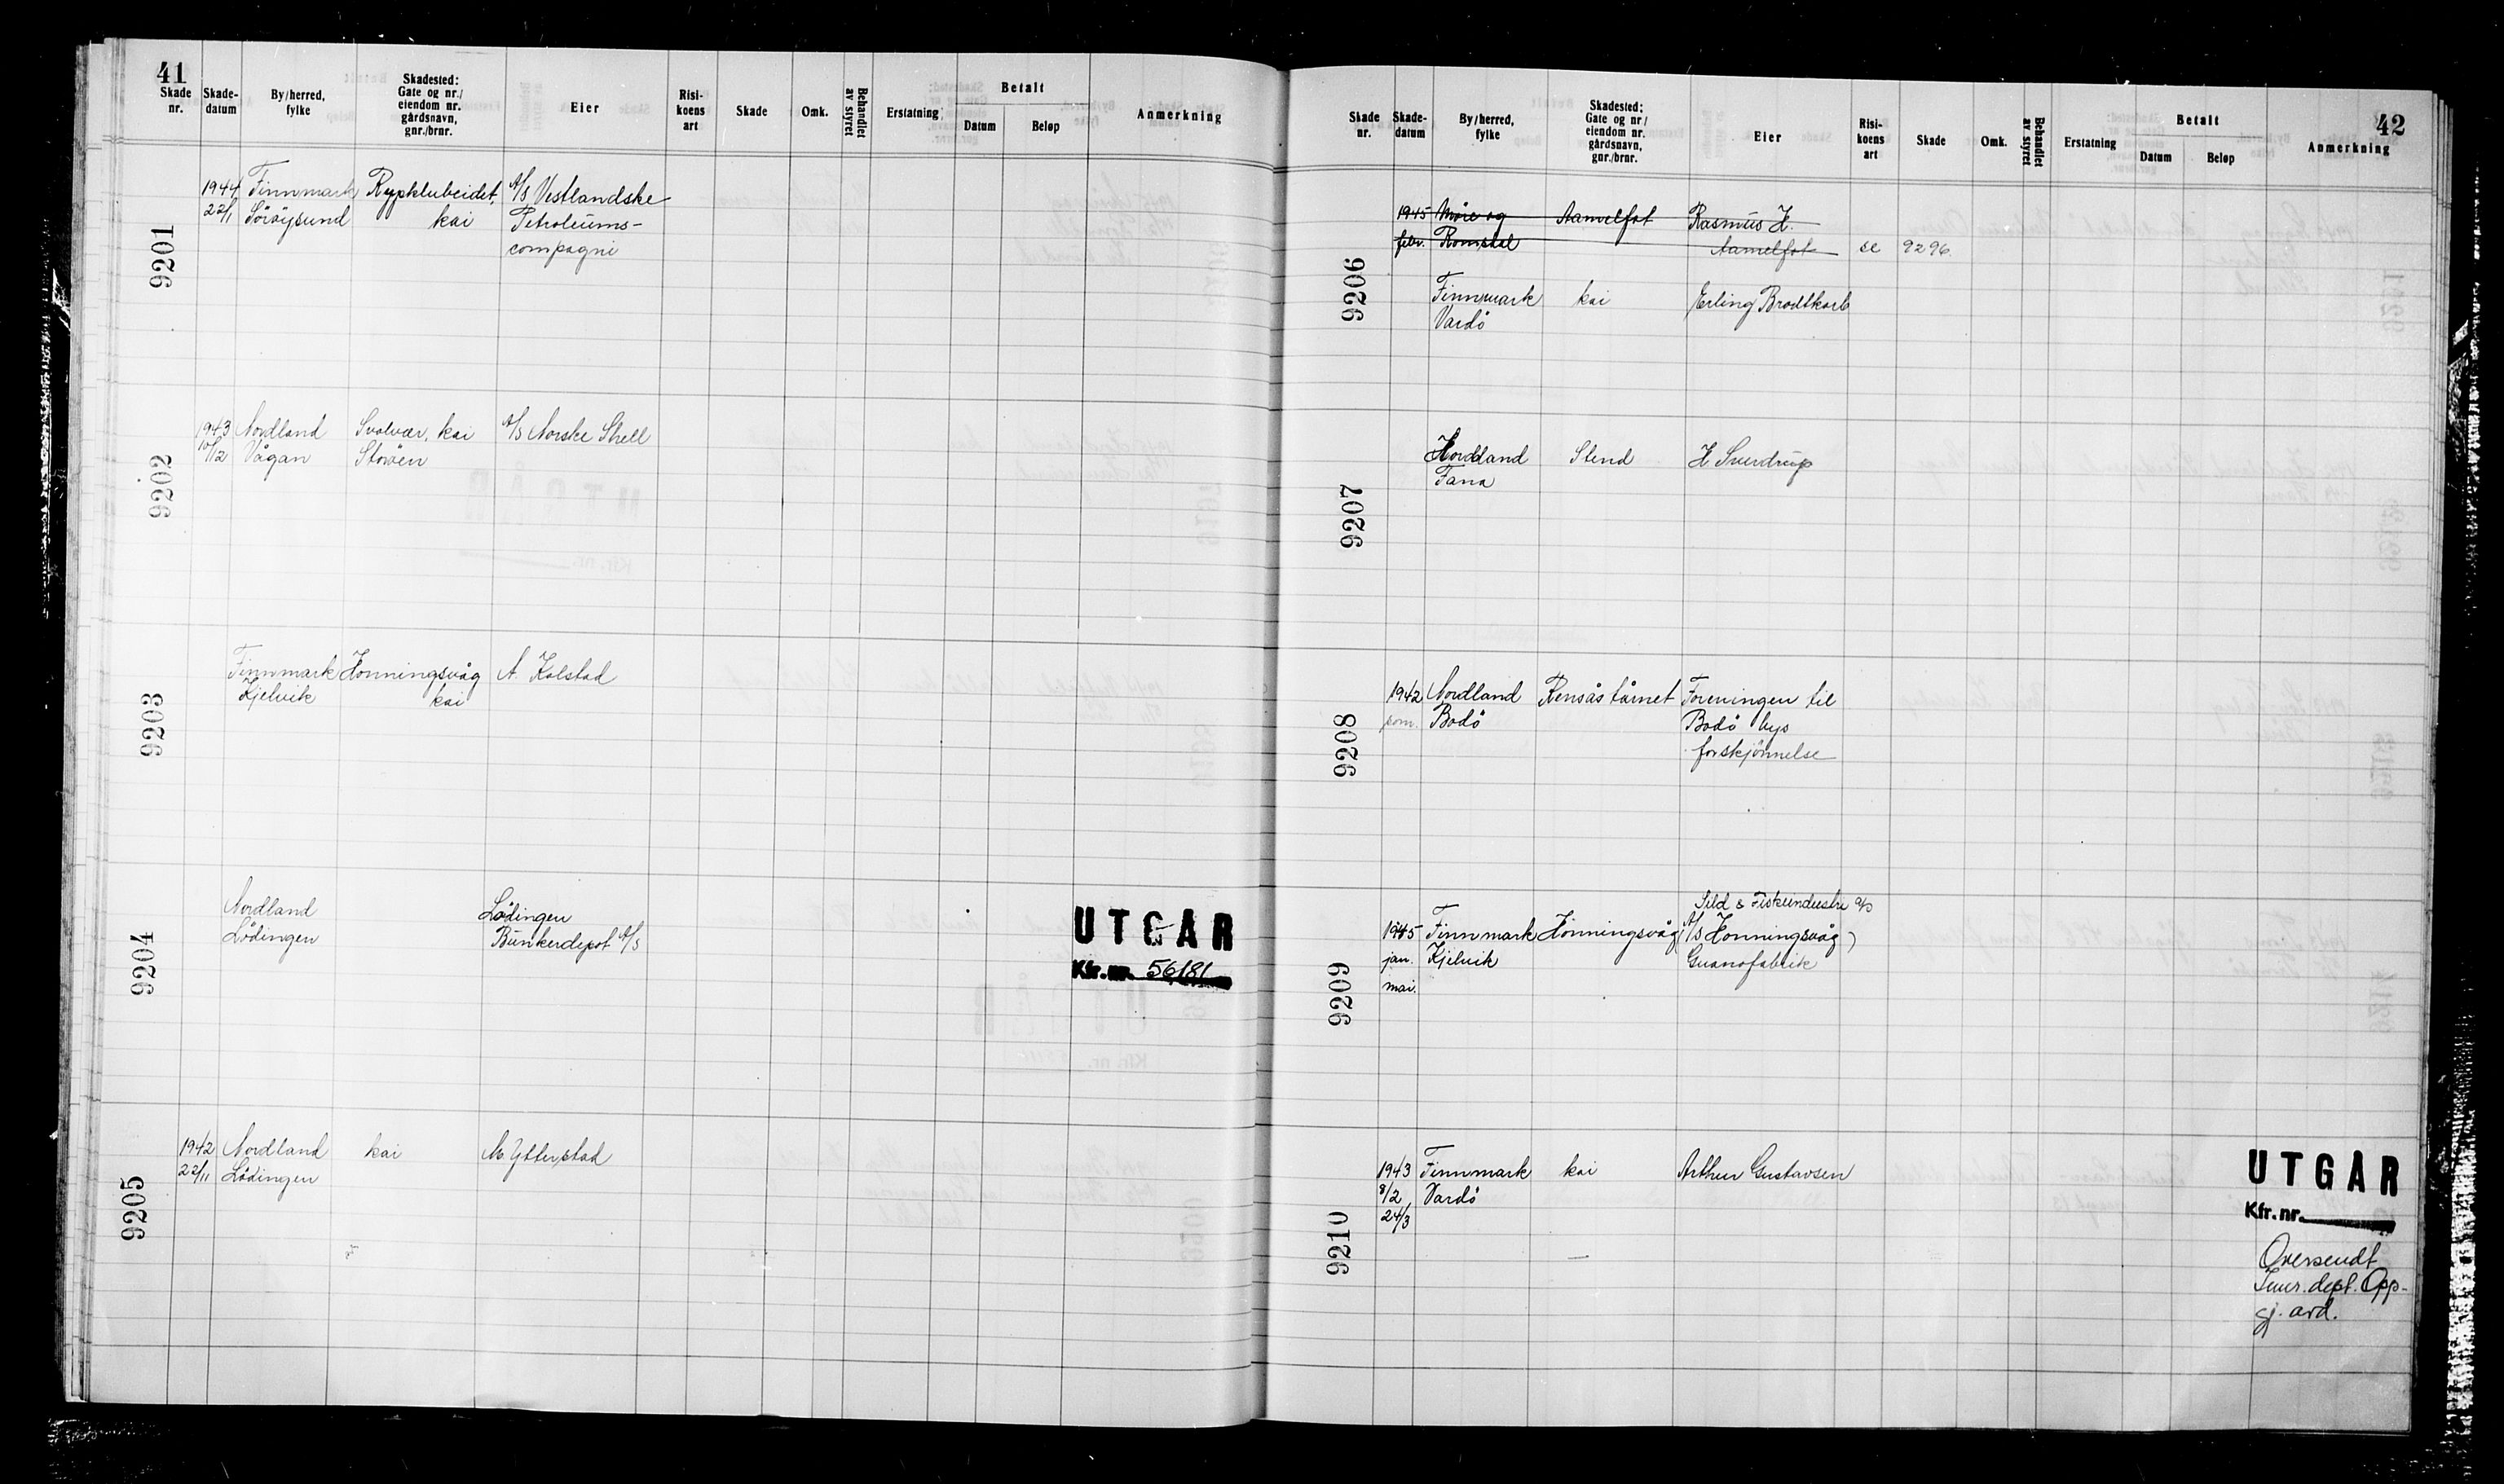 41
Skade nr.
Skade-datum
By/herred, fylke
Skadested: Gate og nr./ eiendom nr. gårdsnavn, gnr./brnr.
Eier
Risi-koens art
Skade
Omk.
Behandlet av styret
Erstatning
Betalt
Datum
Beløp
Anmerkning
9201
1944 Finnmark Rypklubeidet, A/S Vestlandske
22/1 Söröysund kai Petroleums-
compagni
9202
1943 Nordland Svolvær, kai A/S Norske Shell
10/12 Vågan Storöen
9203
Finnmark Honningsvåg A. Kolstad
Kjelvik kai
9204
Nordland Lödingen
Lödingen Bunkerdepot A/S
UTGÅR
Kfr. nr. 56181
9205
1942 Nordland kai M. Ytterstad
22/11 Lödingen
42
Skade nr.
Skade-datum
By/herred, fylke
Skadested: Gate og nr/ eiendom nr. gårdsnavn, gnr/brnr.
Eier
Risi-koens art
Skade
Omk.
Behandlet av styret
Erstatning
Betalt
Datum
Beløp
Anmerkning
9206
1945 Möre og Aamelfot Rasmus H.
febr. Romsdal Aamelfot se 9296
Finnmark kai Erling Brodtkorb
Vardö
9207
Hordland Stend H Sverdrup
Fana
9208
1942 Nordland Rensåstårnet Foreningen til
som. Bodö Bodö bys
forskjönnelse
9209
Sild & Fiskeindustri A/S
1945 Finnmark Honningsvåg (A/S Honningsvåg)
jan. Kjelvik Guanofabrik
mai.
9210
1943 Finnmark kai Arthur Gustavsen
8/2 Vardö
24/3
UTGÅR
Kfr. nr.
Oversendt
Forsv. dept. Opp-
gj. avd.